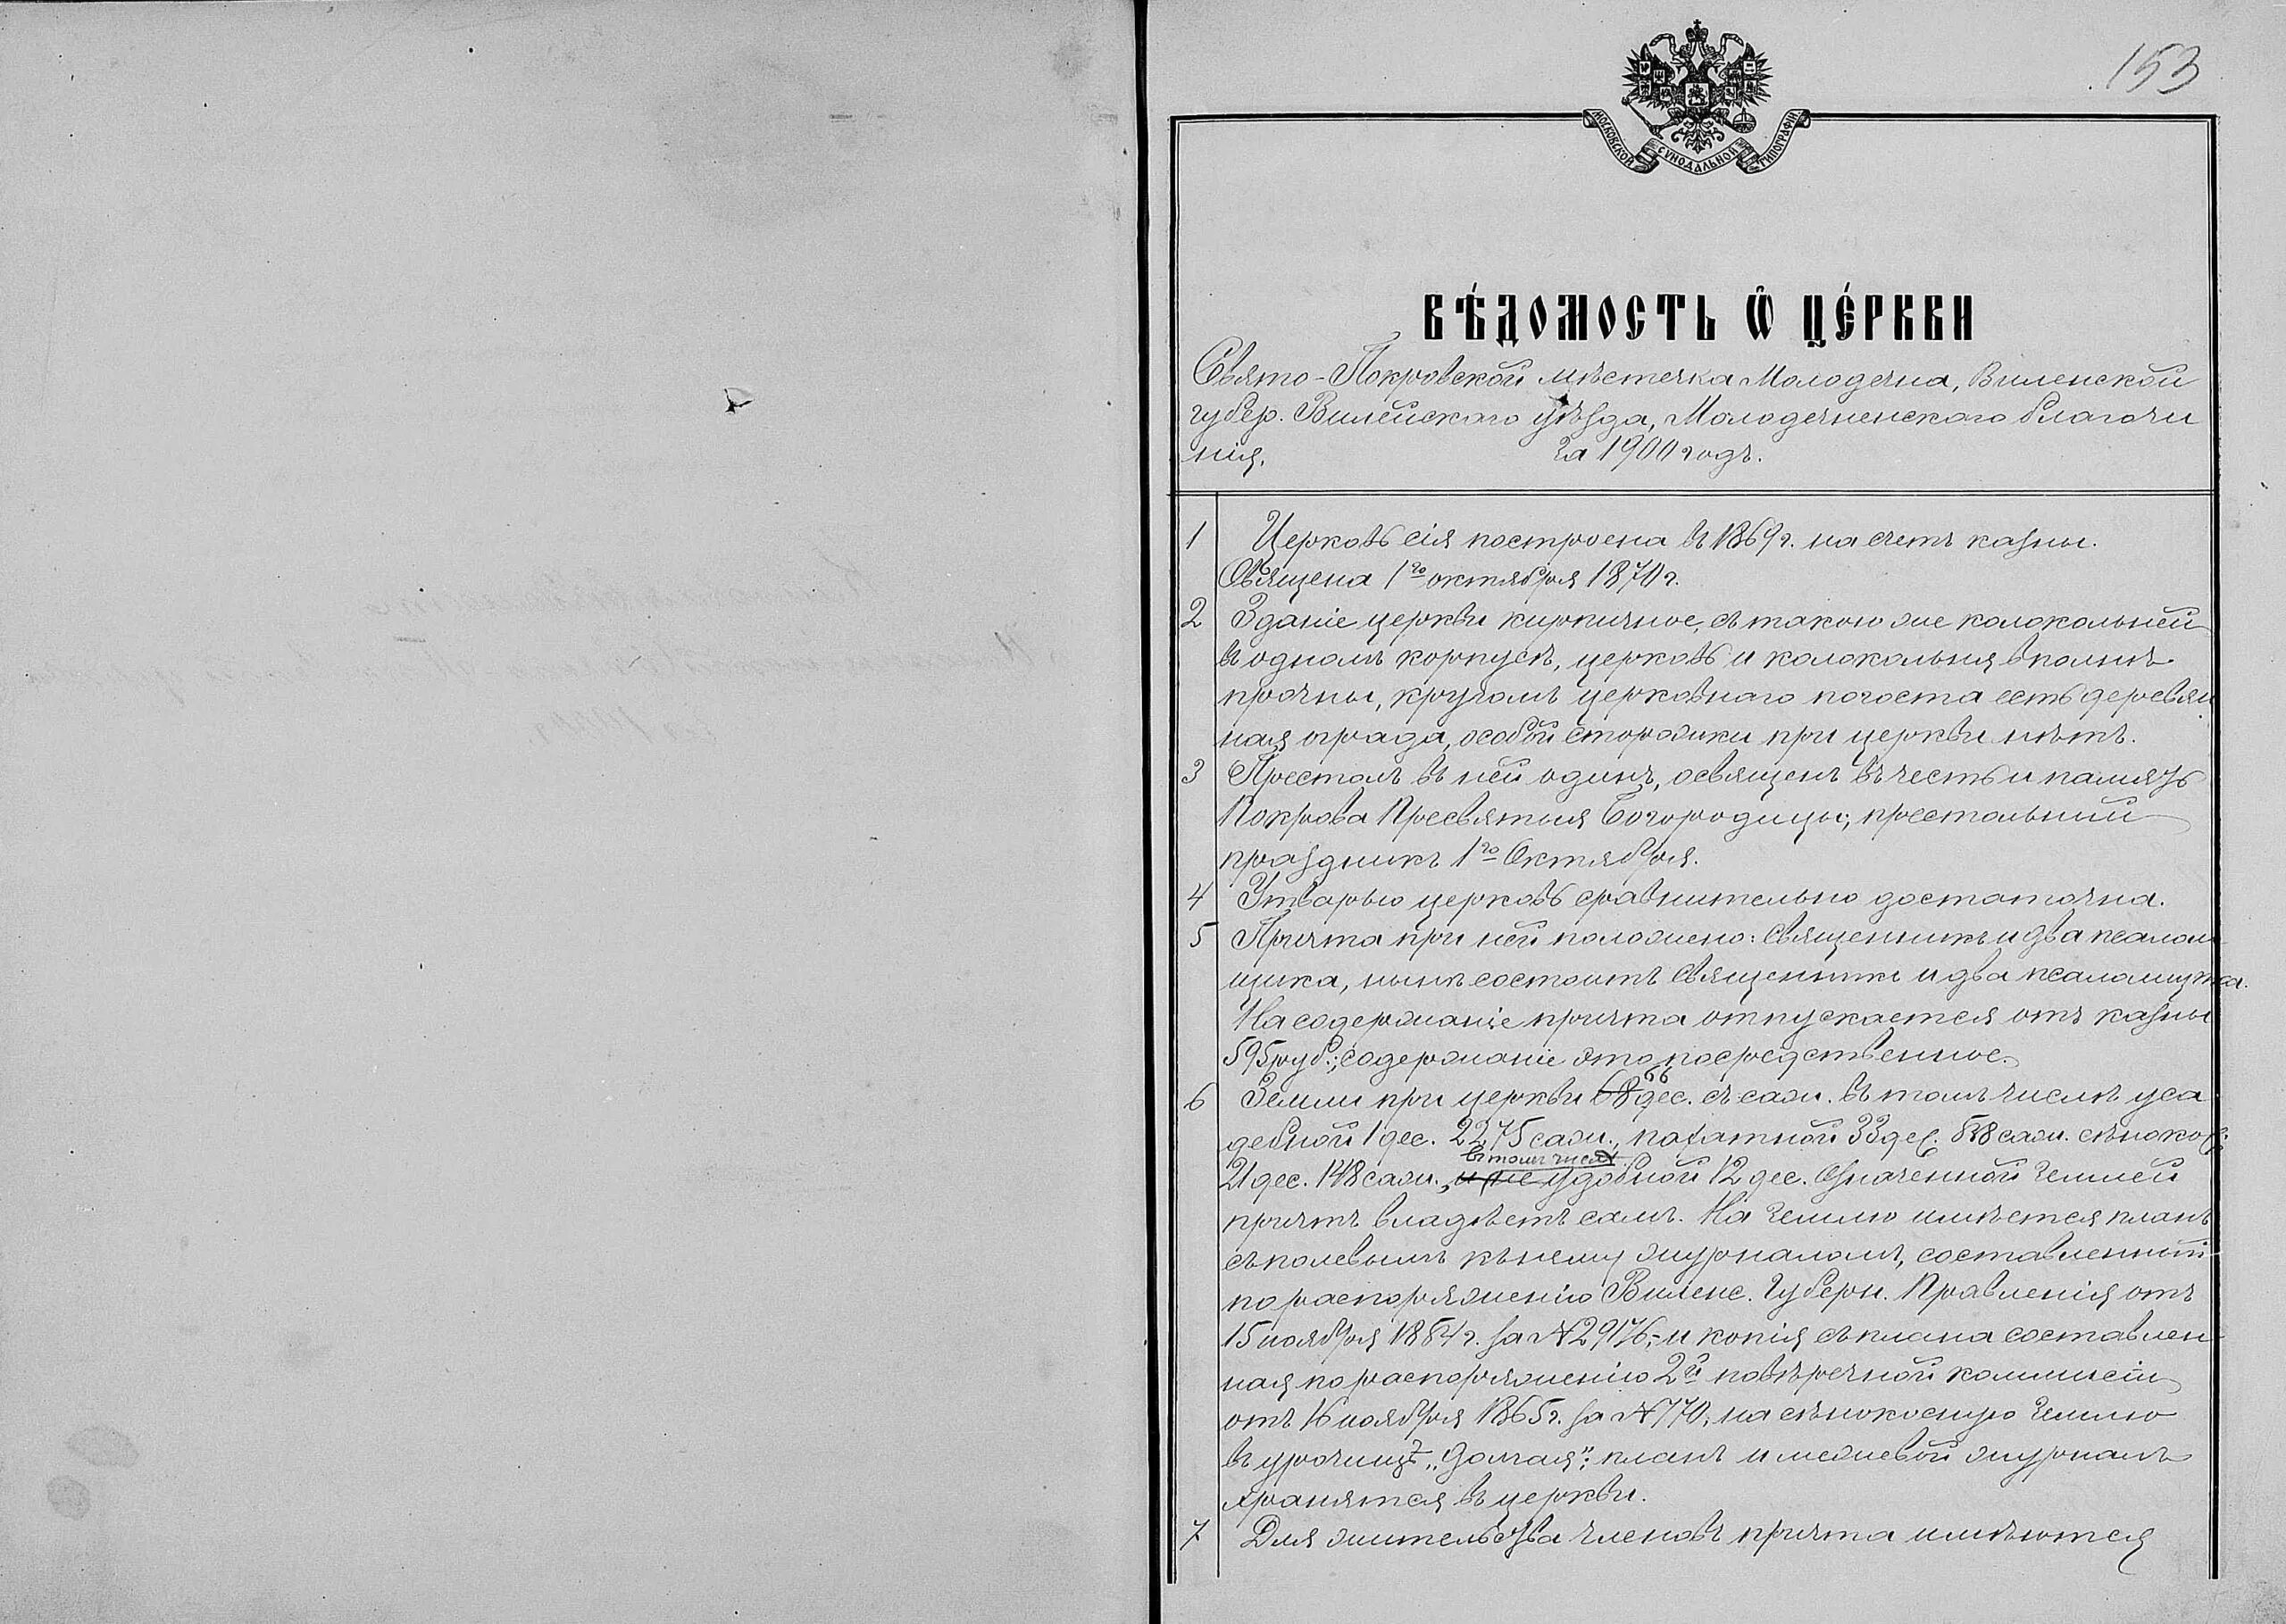 153
МОСКОВСКОЙ СѴНОДАЛЬНОЙ ТИПОГРАФІИ
ВѢ́ДОМОСТЬ Ѽ ЦЕ́РКВИ
Свято-Покровской мѣстечка Молодечна, Виленской
губер. Вилейскаго уѣзда, Молодечненскаго благочи
нія, За 1900 годъ.
1 Церковь сія построена въ 1869 г. на счетъ казны.
Освящена 1го октября 1870 г.
2 Зданіе церкви кирпичное, съ такою же колокольней
въ одномъ корпусѣ, церковь и колокольня вполнѣ
прочны, кругомъ церковнаго погоста есть деревян
ная ограда, особой сторожки при церкви нѣтъ.
3 Престолъ въ ней одинъ, освященъ въ честь и память
Покрова Пресвятыя Богородицы; престольный
праздникъ 1го Октября.
4 Утварью церковь сравнительно достаточна.
5 Причта при ней положено: Священникъ и два псалом
щика, нынѣ состоитъ Священникъ и два псаломщика.
На содержаніе причта отпускается отъ казны
595 руб.; содержаніе это посредственное.
6 Земли при церкви 68 66 дес. съ саж. въ томъ числѣ уса
дебной 1 дес. 2275 саж., пахатной 33 дес. 838 саж. сѣнокос.
21 дес. 148 саж., и не въ томъ числѣ удобной 12 дес. Означенной землей
причтъ владѣетъ самъ. На землю имѣется планъ
съ полевымъ къ нему журналомъ, составленный
по распоряженію Виленс. Губерн. Правленія отъ
15 ноября 1884 г. за № 2976,- и копія съ плана составлен
ная по распоряженію 2й повѣречной коммисіи
отъ 16 ноября 1865 г. за № 770, на сѣнокосную землю
въ урочищѣ „Долгая“; планъ и межевой журналъ
хранятся въ церкви.
7 Для жительства членовъ причта имѣются